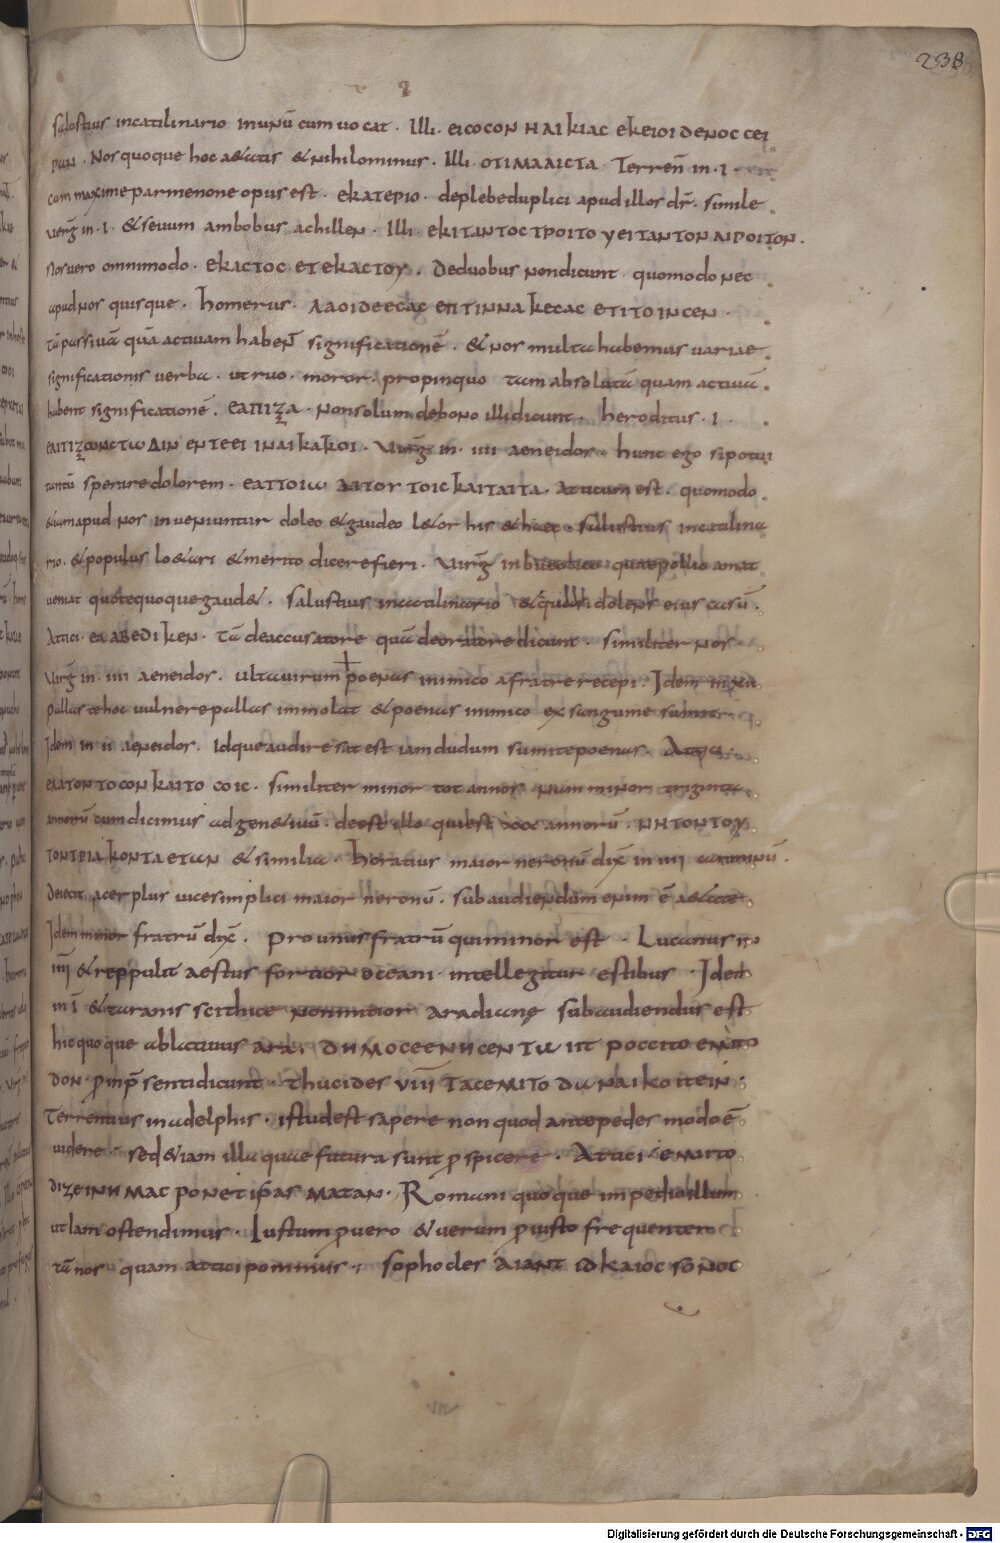 238
salustius incatilinario inunū cum uocat · Illi · ΕΙCΟCΟΝ ΗΛΙΚΙΑC ΕΚΕΙΟΙ DΕΝΟC CΕΙ
ΡΩΝ · Nos quoque hoc aetatis & nihilominus · Illi · ΟΤΙΜΑΛΙCΤΑ · Terreñ in · I ·
cum maxime parmenone opus est · ΕΚΑΤΕΡΙΟ · deplebe duplici apud illos dr̄ · simile
uerg̃ in · I · & seuum ambobus achillen · Illi · ΕΚΙΤΑΝΤΟC ΤΡΟΙΤΟ ΥΕΙΤΑΝΤΟΝ ΑΙΡΟΙΤΟΝ ·
Nos uero omnimodo · ΕΚΑCΤΟC ΕΤ ΕΚΑCΤΟΥ · Deduobus non dicunt quomodo nec
apud nos quisque · homerus · ΛΑΟΙDΕΕCΑC ΕΠΤΙΝΝΑ ΚΕCΑC ΕΤΙΤΟΙΝ CΕΝ ·
tā passiuā quā actiuam habent̄ significationē · & nos multa habemus variae
significationis verba · ut ruo · moror · propinquo tam absolutā quam actiuā ·
habent significationē · ΕΛΠΙΖΑ · Non solum debono illi dicunt · heroditus · I ·
ΕΛΠΙΖΩΝCΤΩ ΔΙΝ ΕΝΤΕΕΙ ΙΝΑΙ ΚΑΚΟΙ · Virg̃ in · IIII aeneidos · hunc ego si potui
tantū sperare dolorem · ΕΑΤΤΟΙΩ ΑΛΤΟΡ ΤΟΙC ΚΑΙΤΑΙΤΑ · Atticum est · quomodo
etiam apud nos inueniuntur doleo & gaudeo l&or his & haec · Salustius incatilina
rio · & populus lo&ari & merito dicere fieri · Virg̃ in bucolica quaepollio amat
ueniat quote quoque gaud& · Salustius incatilinario & quidsi dolens eius casū ·
Attici · ΕΛΑΒΕDΙΚΕΝ · Tā deaccusatore quā deoratore dicunt · similiter nos
Virg̃ in · IIII aeneidos · Ulta uirum poenas inimico afratre recepi · Idem in XII
pallas te hoc uulnere pallas immolat & poenas inimico ex sanguine sumit ·
Idem in II aeneidos · Idque audire sat est iamdudum sumite poenas · Attici ·
ΕΛΑΤΟΝ ΤΟCΟΝ ΚΑΙΤΟ CΟΙC · similiter minor tot annos nam minor triginta
annorū cum dicimus ad gen&iuū · deest ille qui est XXX annorū · ΝΗΤΟΝΤΟΥ
ΤΟΝΤΡΙΑ ΚΟΝΤΑ ΕΤΩΝ & similia · horatius maior neronū dix̄ in IIII carminū ·
Deiecit acer plus uice simplici maior neronū · subaudiendum enim ē aetate
Idem minor fratrū dix̄ · pro unus fratrū qui minor est · Lucanus in
IIII & reppulit aestus fortior oceani · intellegitur estibus · Idem
in I & taranis scithice non mitior ara dianę subaudiendus est
hic quoque ablatiuus ara · DΗΜΟCΕΕΝΗC ΕΝ ΤΩ ΙΙΤ ΡΟCCΙΤΟ ΕΜΙΤΟ
DΟΝ · ꝓ inp̄senti dicunt · thucides VIII ΤΑCΕΜΙΤΟ DΩΝΑΙ ΚΟΙΤΕΙΝ ·
Terrentius in adelphis · istud est sapere non quod ante pedes modo ē
uidere · sed &iam illa quae futura sunt ꝓspicere · Attici ΕΜΙΤΟ
DΙΖΕΙΝΗΜΑC ΡΟΝΕΤ ΙΡ̄ΑC ΜΑΤΑΝ · Romani quoque impedio illum
ut iam ostendimus · Iustum ꝓuero & uerum ꝓiusto frequenter
tā nos quam attici ponimus · sophocles ΑΙΑΝΤ ΙD ΚΑΙΟC SΟΝΟC
Digitalisierung gefördert durch die Deutsche Forschungsgemeinschaft - DFG